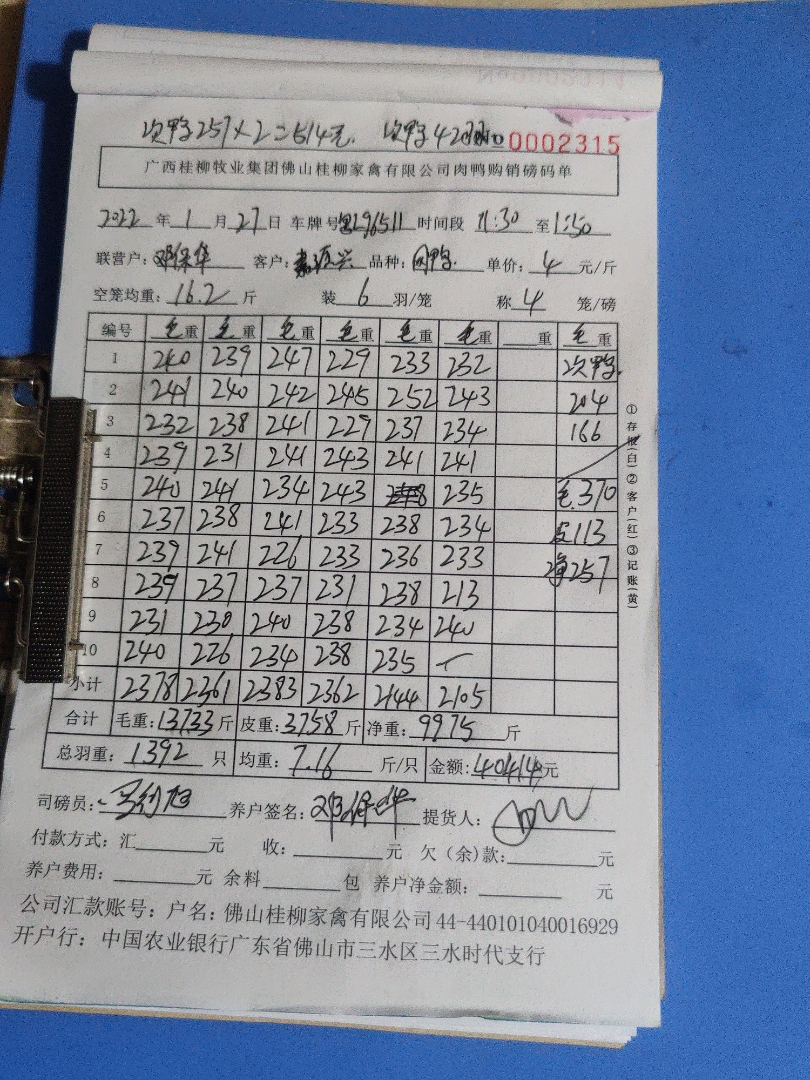 次鸭257×2=514元. 次鸭42羽 No 0002315
广西桂柳牧业集团佛山桂柳家禽有限公司肉鸭购销磅码单
2022 年 1 月 27 日 车牌号 296511 时间段 11:30 至 1:50
联营户: 邓保华 客户: 嘉源兴 品种: 肉鸭. 单价: 4 元/斤
空笼均重: 16.2 斤 装 6 羽/笼 称 4 笼/磅
编号 毛重 毛重 毛重 毛重 毛重 毛重 重 毛重
1 240 239 247 229 233 232 次鸭.
2 241 240 242 245 252 243 204
3 232 238 241 229 237 234 166
4 239 231 241 243 241 241
5 240 241 234 243 235 毛.370
6 237 238 241 233 238 234 皮113
7 239 241 226 233 236 233 净257
8 239 237 237 231 238 213
9 231 230 240 238 234 240
10 240 226 234 238 235
小计 2378 2361 2383 2362 2144 2105
合计 毛重: 13733 斤 皮重: 3758 斤 净重: 9975 斤
总羽重: 1392 只 均重: 7.16 斤/只 金额: 40414 元
司磅员: 养户签名: 邓保华 提货人:
付款方式: 汇 元 收: 元 欠(余)款: 元
养户费用: 元 余料 包 养户净金额: 元
公司汇款账号: 户名: 佛山桂柳家禽有限公司 44-440101040016929
开户行: 中国农业银行广东省佛山市三水区三水时代支行
①存根(白)②客户(红)③记账(黄)